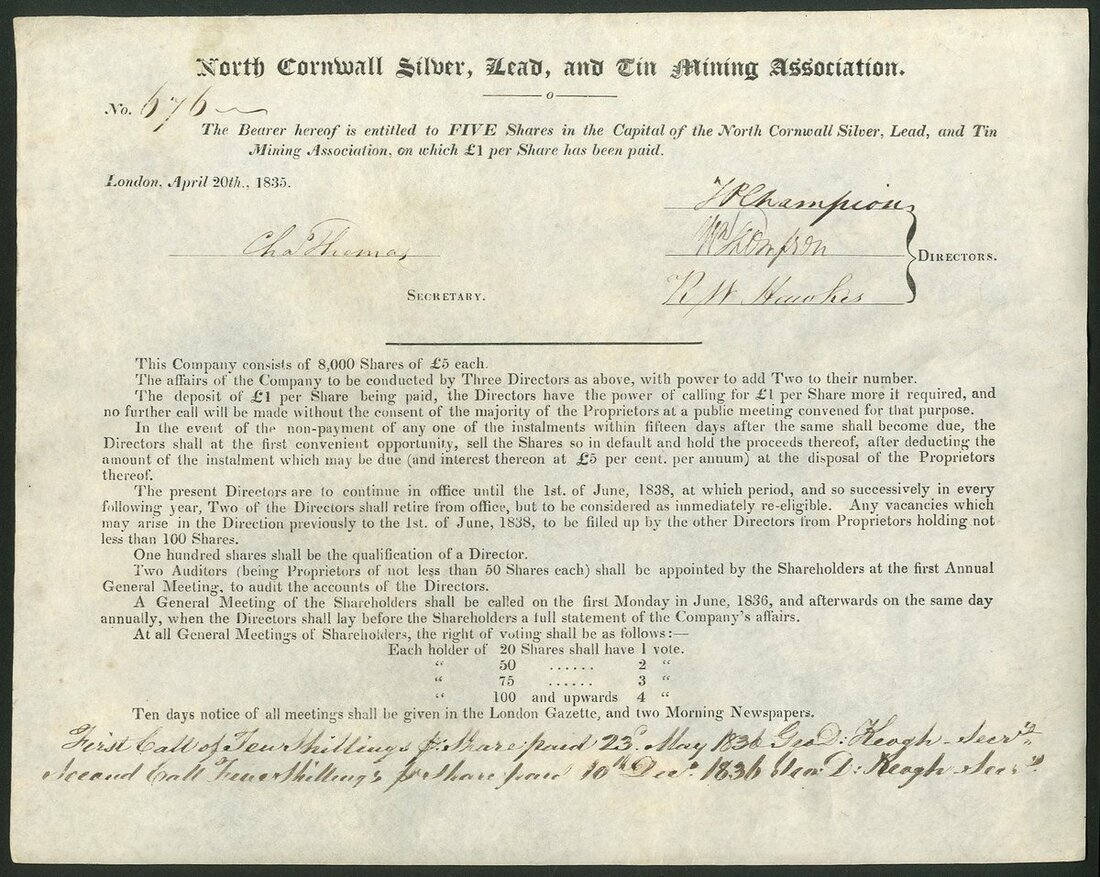 North Cornwall Silver, Lead, and Tin Mining Association.
No. 676
The Bearer hereof is entitled to FIVE Shares in the Capital of the North Cornwall Silver, Lead, and Tin
Mining Association, on which £1 per Share has been paid.
London, April 20th., 1835.
Champion
Chas Thomas
Wm Thompson
DIRECTORS.
SECRETARY.
R W Hawkes
This Company consists of 8,000 Shares of £5 each.
The affairs of the Company to be conducted by Three Directors as above, with power to add Two to their number.
The deposit of £1 per Share being paid, the Directors have the power of calling for £1 per Share more if required, and
no further call will be made without the consent of the majority of the Proprietors at a public meeting convened for that purpose.
In the event of the non-payment of any one of the instalments within fifteen days after the same shall become due, the
Directors shall at the first convenient opportunity, sell the Shares so in default and hold the proceeds thereof, after deducting the
amount of the instalment which may be due (and interest thereon at £5 per cent. per annum) at the disposal of the Proprietors
thereof.
The present Directors are to continue in office until the 1st. of June, 1838, at which period, and so successively in every
following year, Two of the Directors shall retire from office, but to be considered as immediately re-eligible. Any vacancies which
may arise in the Direction previously to the 1st. of June, 1838, to be filled up by the other Directors from Proprietors holding not
less than 100 Shares.
One hundred shares shall be the qualification of a Director.
Two Auditors (being Proprietors of not less than 50 Shares each) shall be appointed by the Shareholders at the first Annual
General Meeting, to audit the accounts of the Directors.
A General Meeting of the Shareholders shall be called on the first Monday in June, 1836, and afterwards on the same day
annually, when the Directors shall lay before the Shareholders a full statement of the Company's affairs.
At all General Meetings of Shareholders, the right of voting shall be as follows:—
Each holder of 20 Shares shall have 1 vote.
“ 50 ...... 2 “
“ 75 ...... 3 “
“ 100 and upwards 4 “
Ten days notice of all meetings shall be given in the London Gazette, and two Morning Newspapers.
First Call of Ten Shillings pr Share paid 23d May 1836 Geo D: Keogh Secry
Second Call Shillings pr Share paid 10th Decr 1836 Geo: D: Keogh Secry